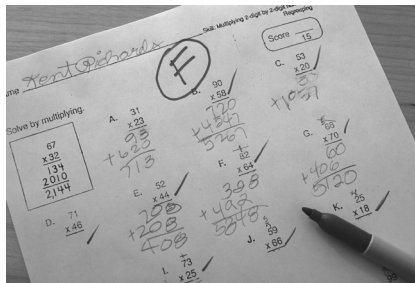 Skill: Multiplying 2-digit by 2-digit
Regrouping
Kent Richards
Score 15
F
Solve by multiplying.
67
x 32
134
2010
2,144
A. 31
x 23
93
+ 620
713
B. 90
x 58
720
C. 53
x 20
D. 71
x 46
E. 52
x 44
208
+ 208
408
F. 82
x 64
328
+ 492
5248
G. 58
x 70
60
+ 406
5120
I. 73
x 25
J. 59
x 66
K. 25
x 18